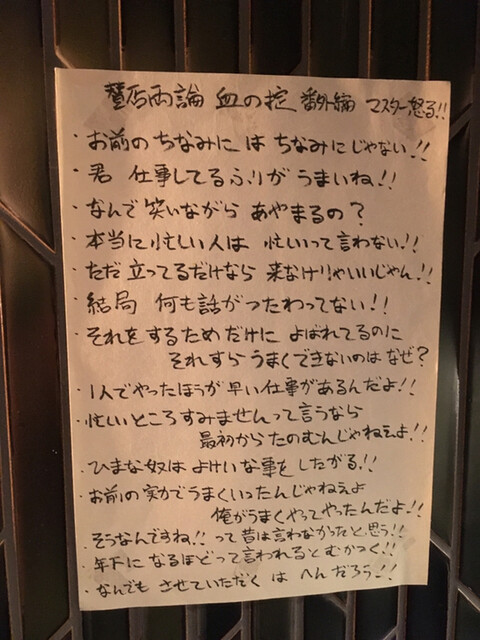 賛否両論 血の掟 番外編 マスター怒る!!
・お前のちなみにはちなみにじゃない!!
・君 仕事してるふりがうまいね!!
・なんで笑いながらあやまるの?
・本当に忙しい人は 忙しいって言わない!!
・ただ立ってるだけなら来なけりゃいいじゃん!!
・結局 何も話がつたわってない!!
・それをするためだけによばれてるのに
それすらうまくできないのはなぜ?
・1人でやったほうが早い仕事があるんだよ!!
・忙しいところすみませんって言うなら
最初からたのむんじゃねぇよ!!
・ひまな奴はよけいな事をしたがる!!
・お前の実力でうまくいったんじゃねぇよ
俺がうまくやってやったんだよ!!
・そうなんですね!!って昔は言わなかったと思う!!
・年下になるほどって言われるとむかつく!!
・なんでもさせていただくはへんだろう!!